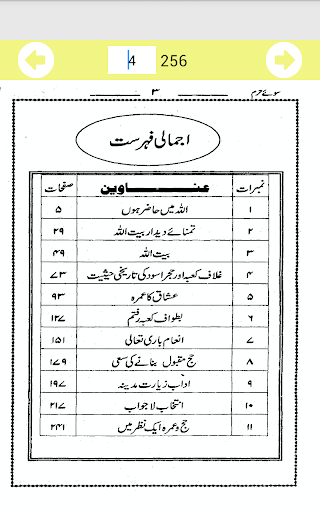 4 256
سوئے حرم ۳
اجمالی فہرست
نمبرات عناوین صفحات
۱ اللہ میں حاضر ہوں ۵
۲ تمنائے دیدار بیت اللہ ۲۹
۳ بیت اللہ ۴۹
۴ غلاف کعبہ اور حجر اسود کی تاریخی حیثیت ۷۳
۵ عشاق کا عمرہ ۹۳
۶ بطواف کعبہ رفتم ۱۲۷
۷ انعام باری تعالی ۱۵۱
۸ حج مقبول بنانے کی سعی ۱۷۹
۹ آداب زیارت مدینہ ۱۹۷
۱۰ انتخاب لاجواب ۲۱۷
۱۱ حج و عمرہ ایک نظر میں ۲۴۱